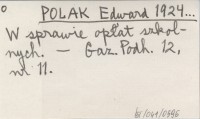 POLAK Edward 1924...
W sprawie opłat szkol-
nych. — Gaz. Podh. 12,
nr 11.